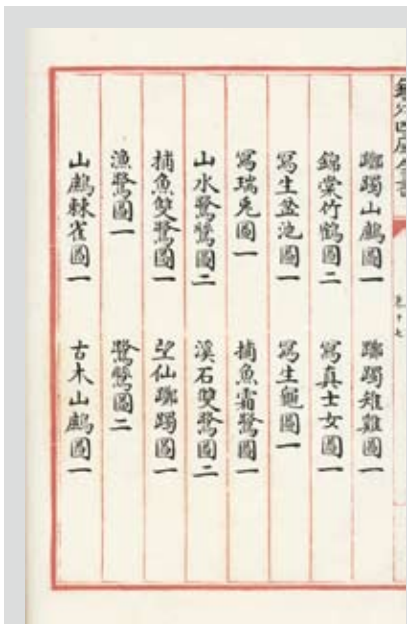 欽定四庫全書
卷十七
躑躅山鷓圖一 躑躅雉雞圖一
錦棠竹鶴圖二 寫真士女圖一
寫生盆池圖一 寫生龜圖一
寫瑞兎圖一 捕魚霜鷺圖一
山水鷺鷥圖二 溪石雙鷺圖二
捕魚雙鷺圖一 望仙躑躅圖一
漁鷺圖一 鷺鷥圖二
山鷓棘雀圖一 古木山鷓圖一